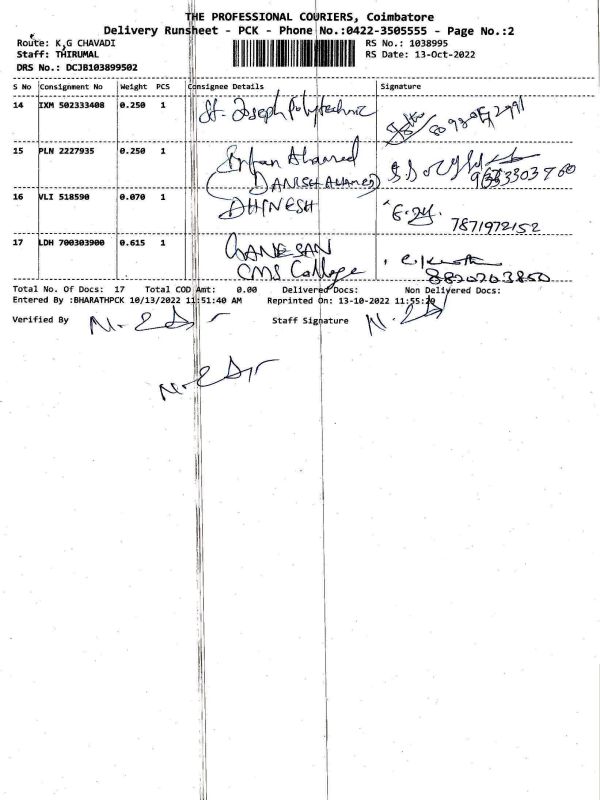 THE PROFESSIONAL COURIERS, Coimbatore
Delivery Runsheet - PCK - Phone No.:0422-3505555 - Page No.:2
Route: K,G CHAVADI RS No.: 1038995
Staff: THIRUMAL RS Date: 13-Oct-2022
DRS No.: DCJB103899502
S No Consignment No Weight PCS Consignee Details Signature
14 IXM 502333408 0.250 1 St. Joseph Polytechnic
15 PLN 2227935 0.250 1 Irfan Ahamed
(DANISH AHAMED)
16 VLI 518590 0.070 1 DHINESH 7871972152
17 LDH 700303900 0.615 1 GANESAN
CMS College
Total No. Of Docs: 17 Total COD Amt: 0.00 Delivered Docs: Non Delivered Docs:
Entered By :BHARATHPCK 10/13/2022 11:51:40 AM Reprinted On: 13-10-2022 11:55:29
Verified By Staff Signature